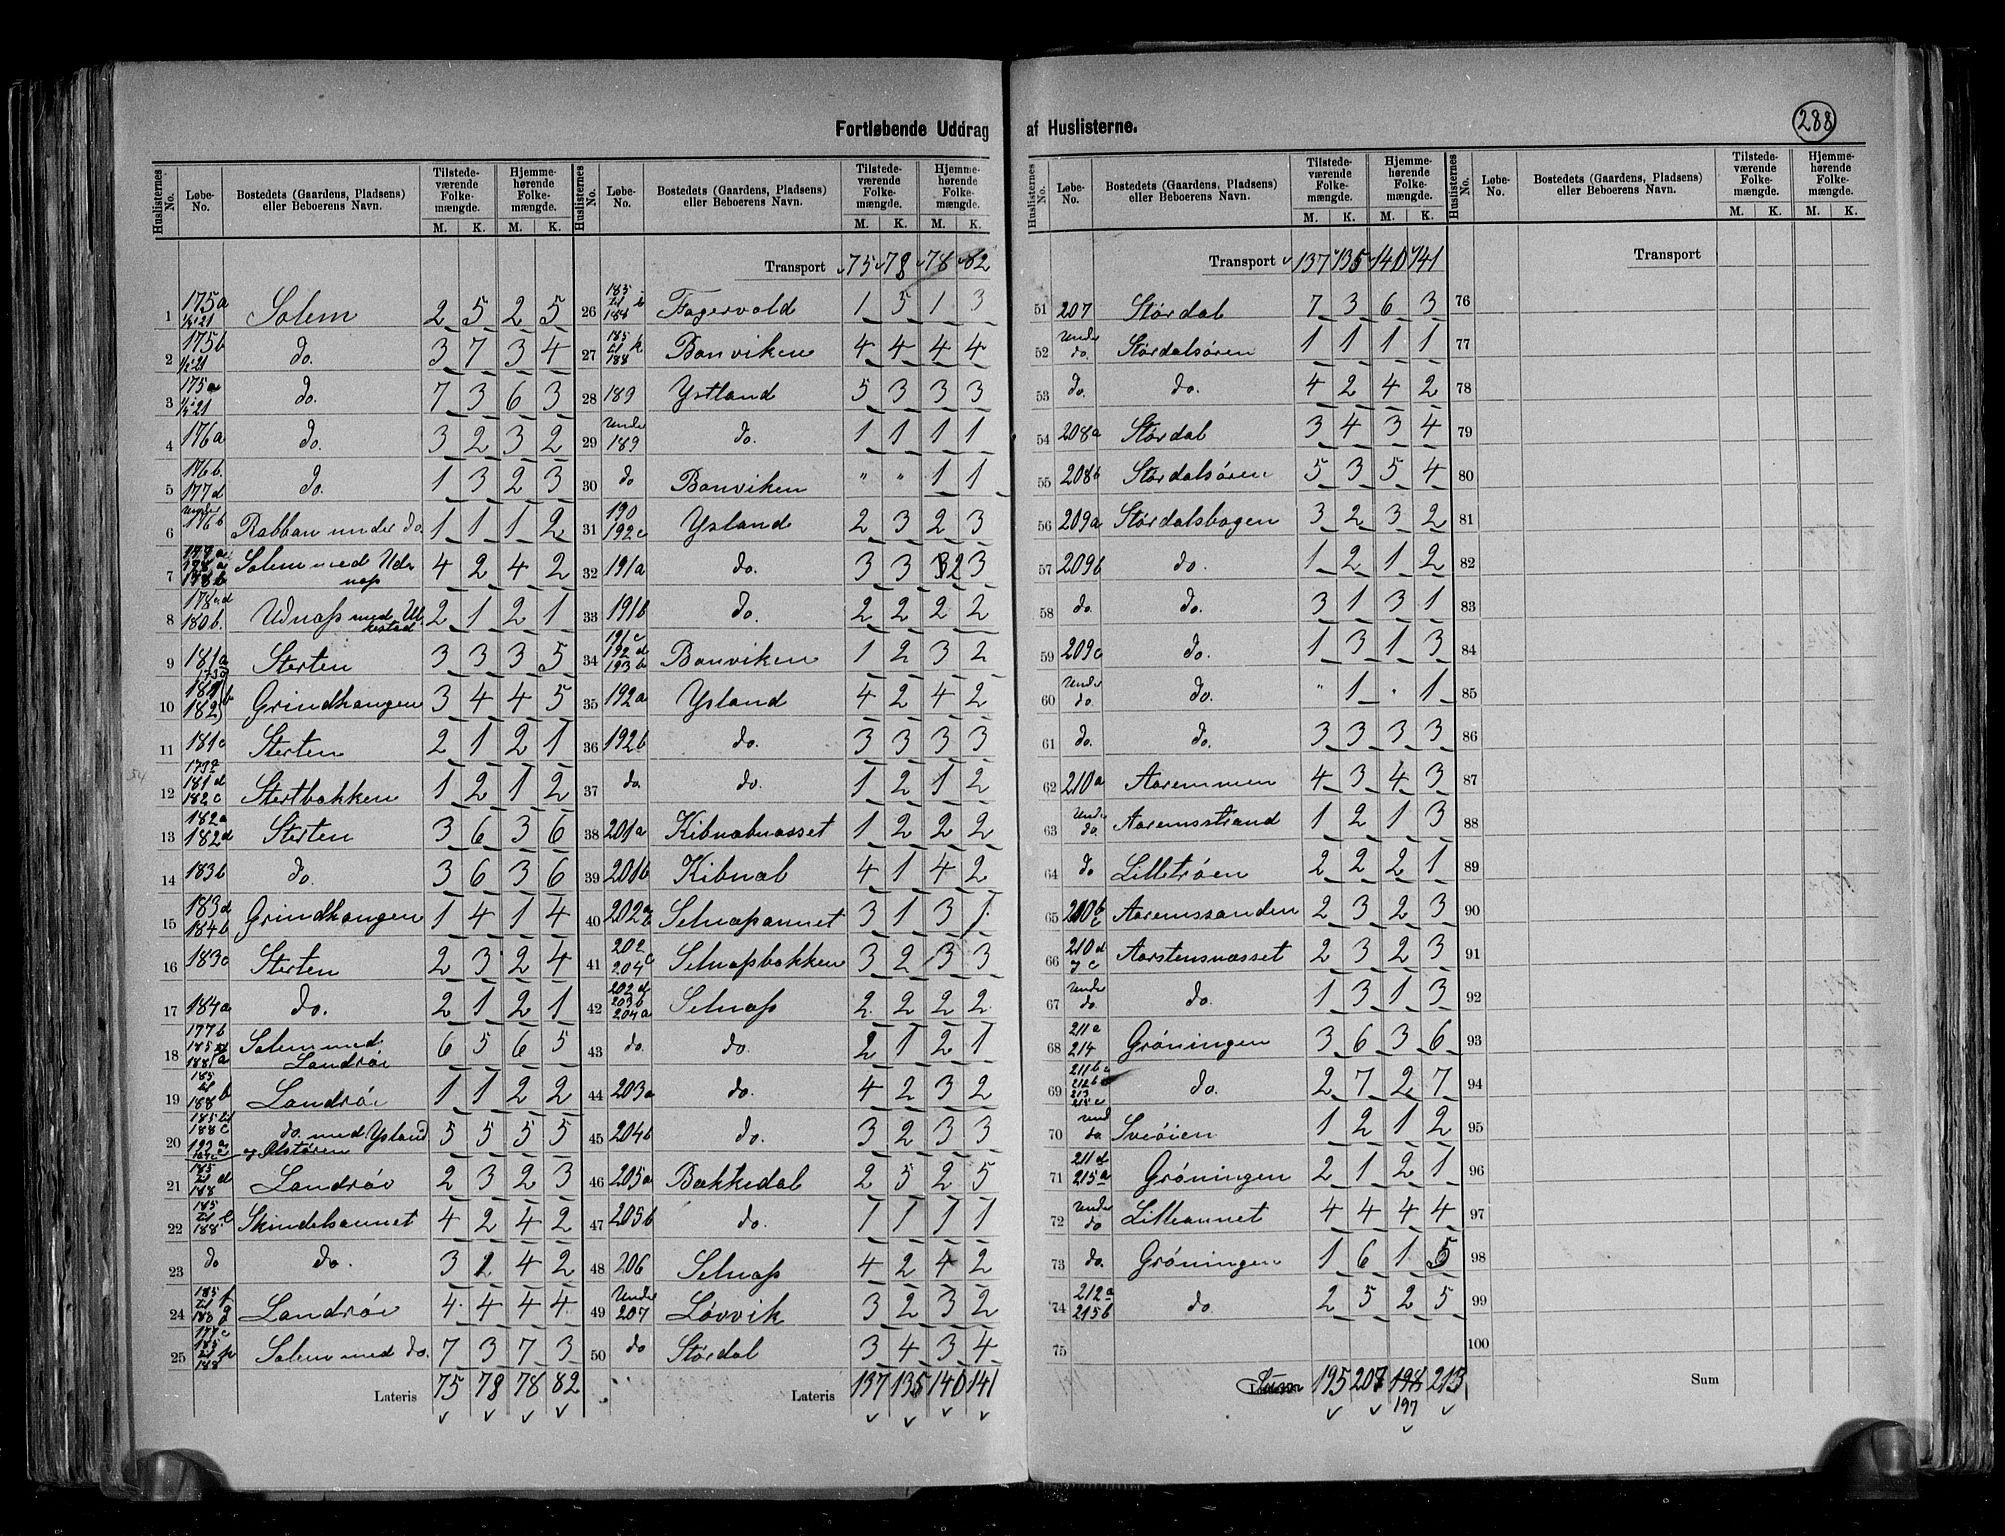 Fortløbende Uddrag af Huslisterne.
288
Huslisternes No. | Løbe-No. | Bostedets (Gaardens, Pladsens) eller Beboerens Navn. | Tilstedeværende Folkemængde. M. K. | Hjemmehørende Folkemængde. M. K.
1 175a Solem 2 5 2 5
2 175b do. 3 7 3 4
3 175a do. 7 3 6 3
4 176a do. 3 2 3 2
5 176b. 177d do. 1 3 2 3
6 under 176b Rabban under do. 1 1 1 2
7 178b Solem med Udnæs 4 2 4 2
8 180b. Udnæs med 2 1 2 1
9 181a Sterten 3 3 3 5
10 181b 182 Grindhaugen 3 4 4 5
11 181c Sterten 2 1 2 1
12 181d 182c Stertbakken 1 2 1 2
13 182a 182d Sterten 3 6 3 6
14 183b do. 3 6 3 6
15 183d 184b Grindhaugen 1 4 1 4
16 183c Sterten 2 3 2 4
17 184a do. 2 1 2 1
18 177b 185 til 188a Solem med Landrøi 6 5 6 5
19 185 til 188b Landrøi 1 1 2 2
20 185 til 188c do. med Ysland og Olstøren 5 5 5 5
21 185 til 188d Landrøi 2 3 2 3
22 185 til 188e Skindelaunet 4 2 4 2
23 do do. 3 2 4 2
24 185 til 188 Landrøi 4 4 4 4
25 177c 185 til 188 Solem med do. 7 3 7 3
Lateris 75 78 78 82
Transport 75 78 78 82
26 185 til 188 Fagervold 1 5 1 3
27 185 til 188 k Bonviken 4 4 4 4
28 189 Ystland 5 3 3 3
29 under 189 do. 1 1 1 1
30 do Bonviken " " 1 1
31 190 192c Ysland 2 3 2 3
32 191a do. 3 3 2 3
33 191b do. 2 2 2 2
34 191c 192d 193b Bonviken 1 2 3 2
35 192a Ysland 4 2 4 2
36 192b do. 3 3 3 3
37 do do. 1 2 1 2
38 201a Kibnabnæsset 1 2 2 2
39 201b Kibnab 4 1 4 2
40 202a Selnæsaunet 3 1 3 1
41 202 204c Selnæsbakken 3 2 3 3
42 202d 203b 204a Selnæs 2 2 2 2
43 do. do. 2 1 2 1
44 203a do. 4 2 3 2
45 204b do. 3 2 3 3
46 205a Bakkedal 2 5 2 5
47 205b do. 1 1 1 1
48 206 Selnæs 4 2 4 2
49 Under 207 Lovvik 3 2 3 2
50 do Stórdal 3 4 3 4
Lateris 137 135 140 141
Transport 137 135 140 141
51 207 Stórdal 7 3 6 3
52 Under do. Stórdalsóren 1 1 1 1
53 do. do. 4 2 4 2
54 208a Stórdal 3 4 3 4
55 208b Stórdalsóren 5 3 5 4
56 209a Stórdalsbogen 3 2 3 2
57 209b do. 1 2 1 2
58 do. do. 3 1 3 1
59 209c do. 1 3 1 3
60 Under do. do. " 1 " 1
61 do. do. 3 3 3 3
62 210a Aaremmen 4 3 4 3
63 Under do. Aaremsstrand 1 2 1 3
64 do Lilletróen 2 2 2 1
65 210b c Aaremssanden 2 3 2 3
66 210d Aarstensnæsset 2 3 2 3
67 Under do. do. 1 3 1 3
68 211a 214 Gróningen 3 6 3 6
69 211b 212b 213 do. 2 7 2 7
70 und do. Sveóien 1 2 1 2
71 211d 215a Gróningen 2 1 2 1
72 Under do Lilleaunet 4 4 4 4
73 do. Gróningen 1 6 1 5
74 212a 215b do 2 5 2 5
75
195 207 198 213
197
Transport
76
77
78
79
80
81
82
83
84
85
86
87
88
89
90
91
92
93
94
95
96
97
98
99
100
Sum